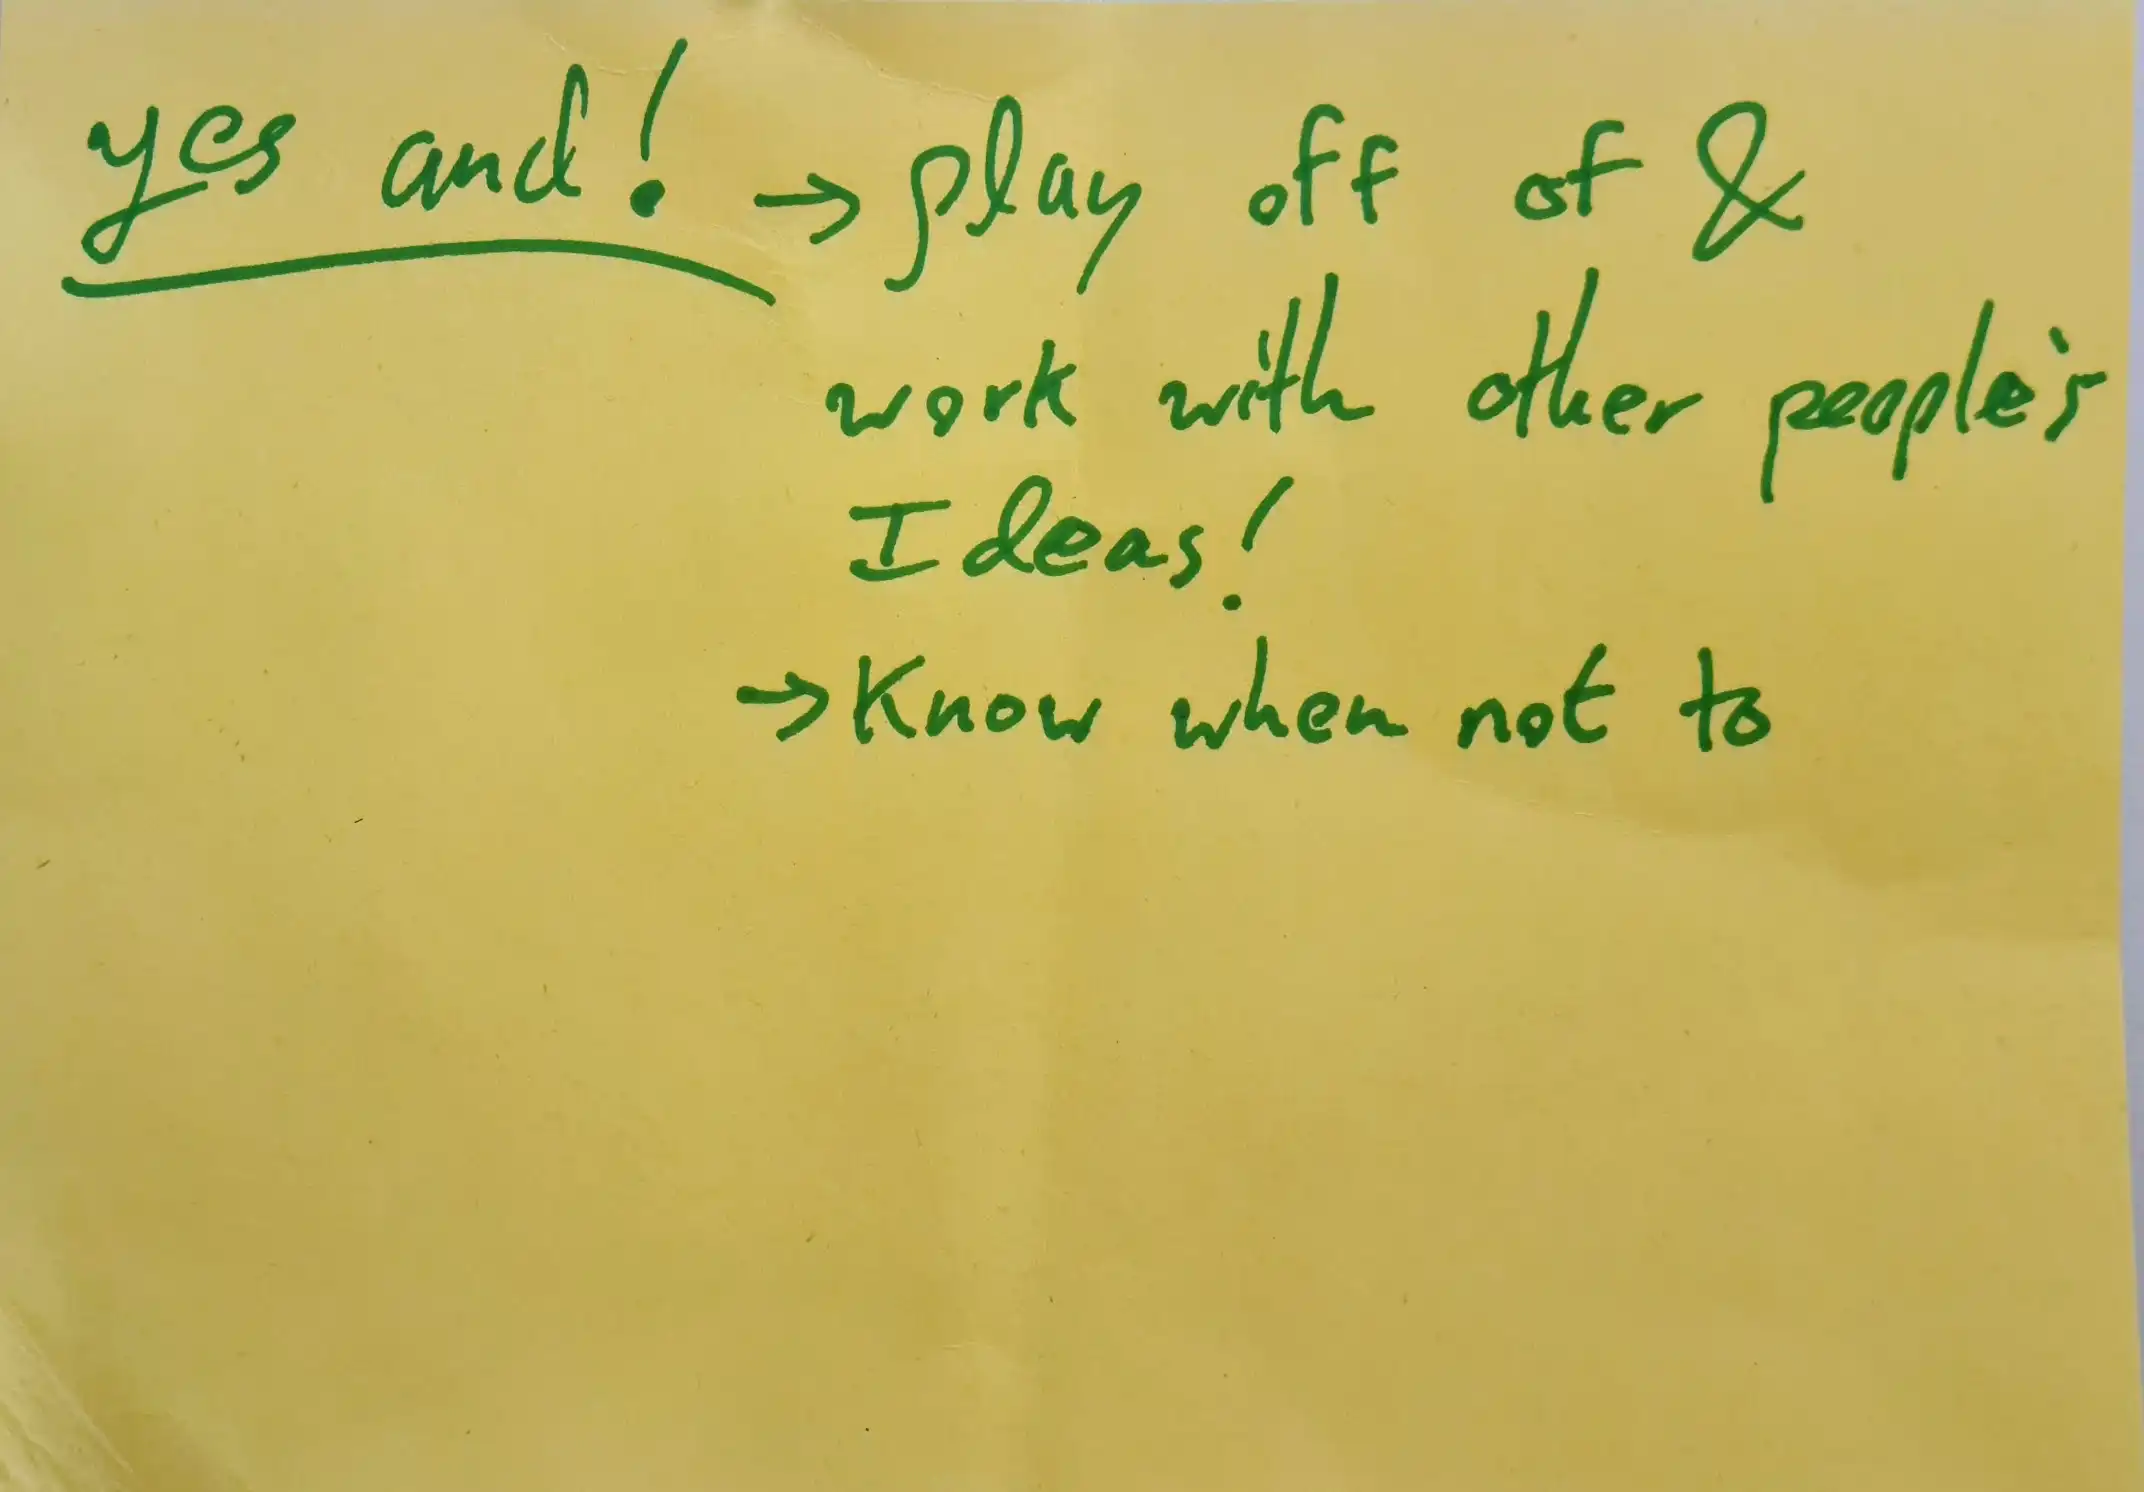 yes and! → play off of &
work with other people's
Ideas!
→ Know when not to